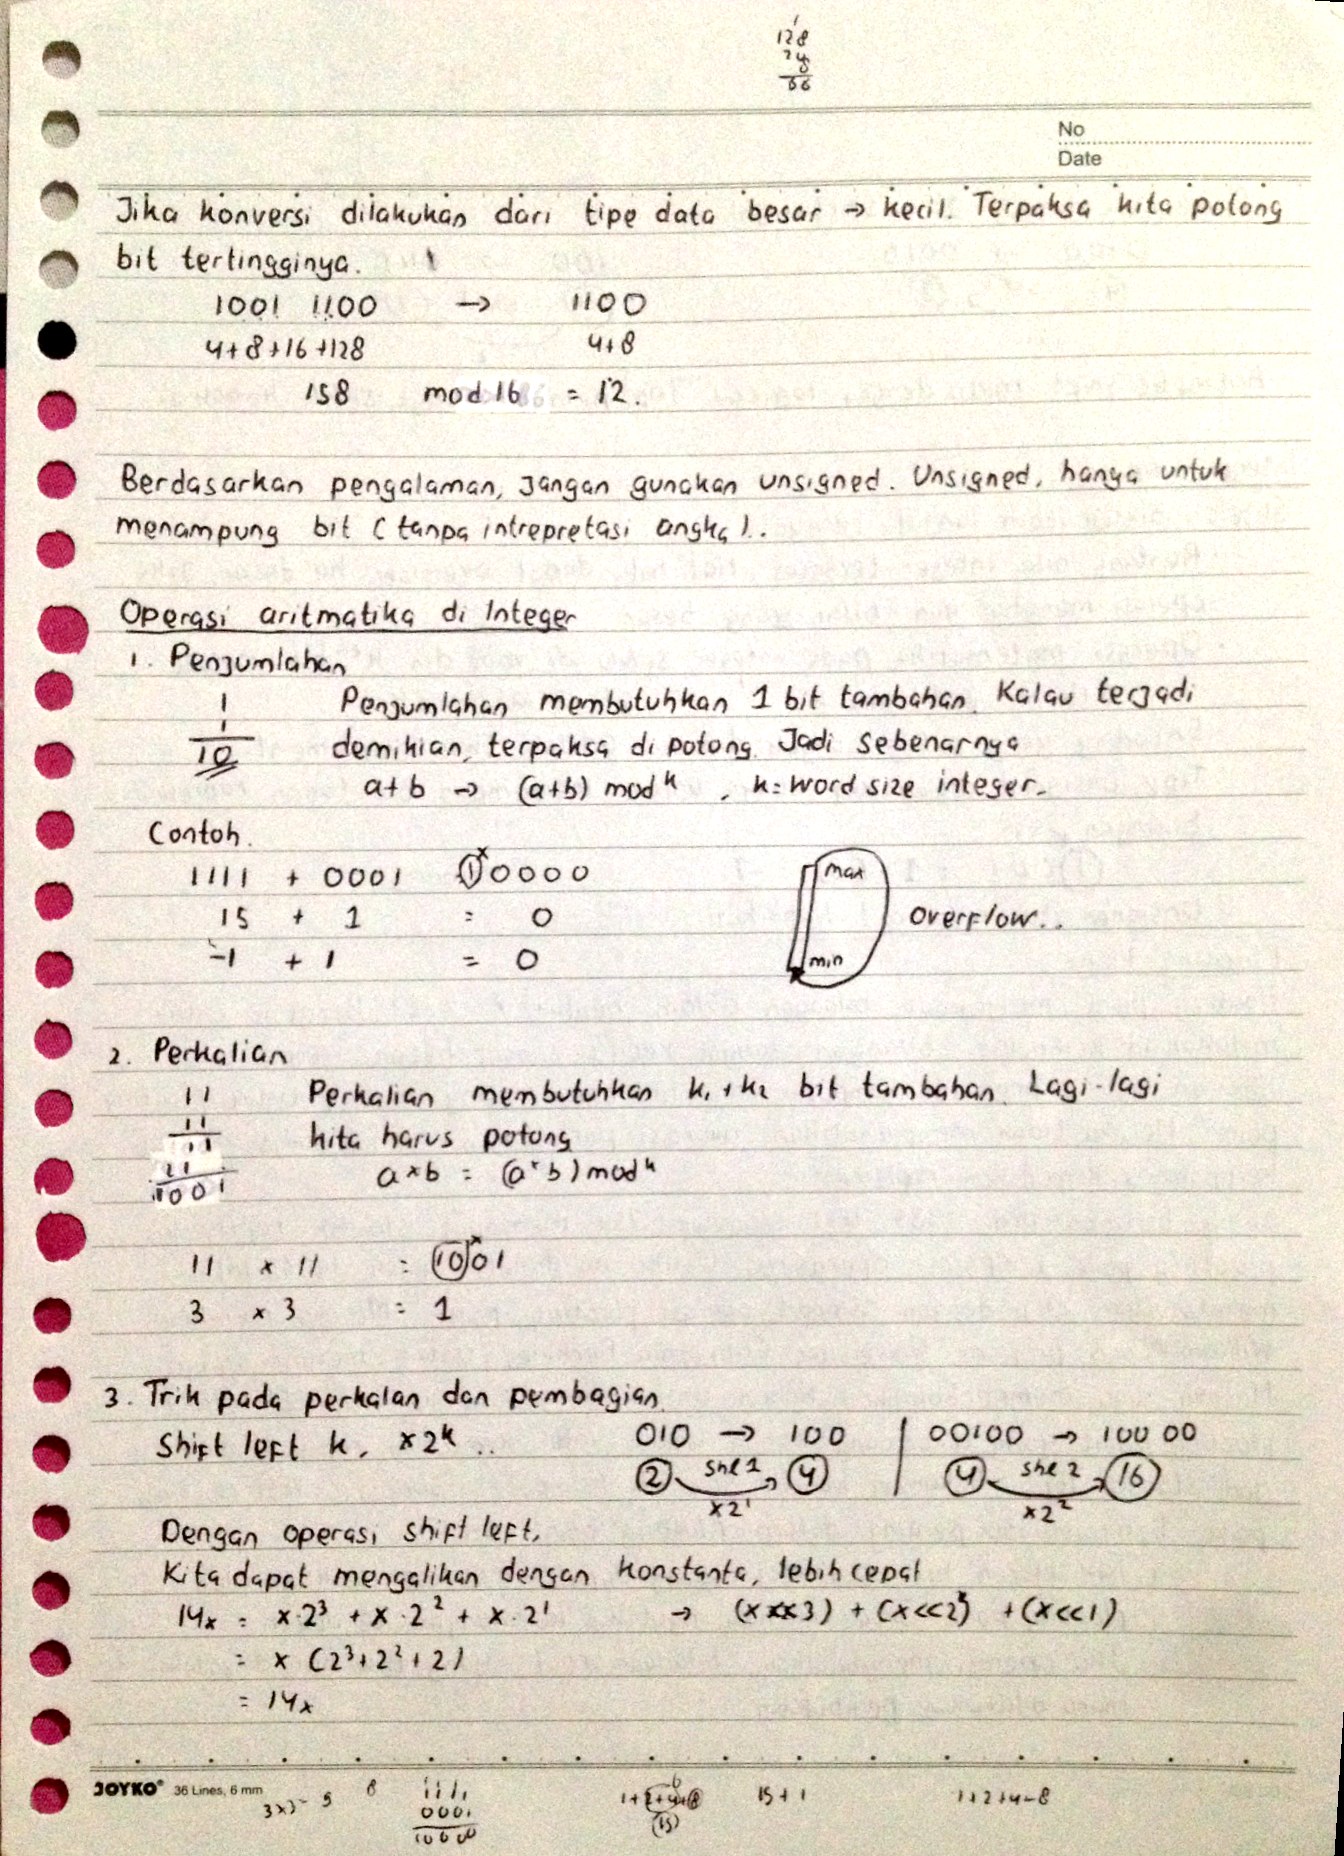 128
24
8
66
No
Date
Jika konversi dilakukan dari tipe data besar → kecil. Terpaksa kita potong
bit tertingginya.
1001 1100 → 1100
4+8+16+128 4+8
158 mod 16 = 12.
Berdasarkan pengalaman, jangan gunakan unsigned. Unsigned, hanya untuk
menampung bit (tanpa intrepretasi angka)..
Operasi aritmatika di Integer
1. Penjumlahan
1 Penjumlahan membutuhkan 1 bit tambahan. Kalau terjadi
1
10 demikian, terpaksa di potong. Jadi sebenarnya
a+b → (a+b) mod k , k = word size integer.
Contoh.
1111 + 0001 10000 max
15 + 1 = 0 Overflow..
-1 + 1 = 0 min
2. Perkalian
11 Perkalian membutuhkan k₁ + k₂ bit tambahan. Lagi-lagi
11
11 kita harus potong
11
1001 a*b = (a*b) mod k
11 x 11 = 1001
3 x 3 = 1
3. Trik pada perkalan dan pembagian.
Shift left k, x2ᵏ .. 010 → 100 | 00100 → 100 00
2 shl 1 4 4 shl 2 16
x2¹ x2²
Dengan operasi shift left,
Kita dapat mengalikan dengan konstanta, lebih cepat
14x = x·2³ + x·2² + x·2¹ → (x<<3) + (x<<2) + (x<<1)
= x (2³+2²+2)
= 14x
JOYKO® 36 Lines, 6 mm
3x3= 9 8 1111 1+2+4+8 15+1 1+2+4-8
0001 (15)
10000